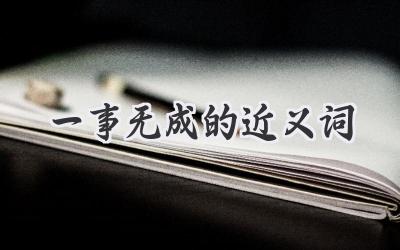 一事无成的近义词